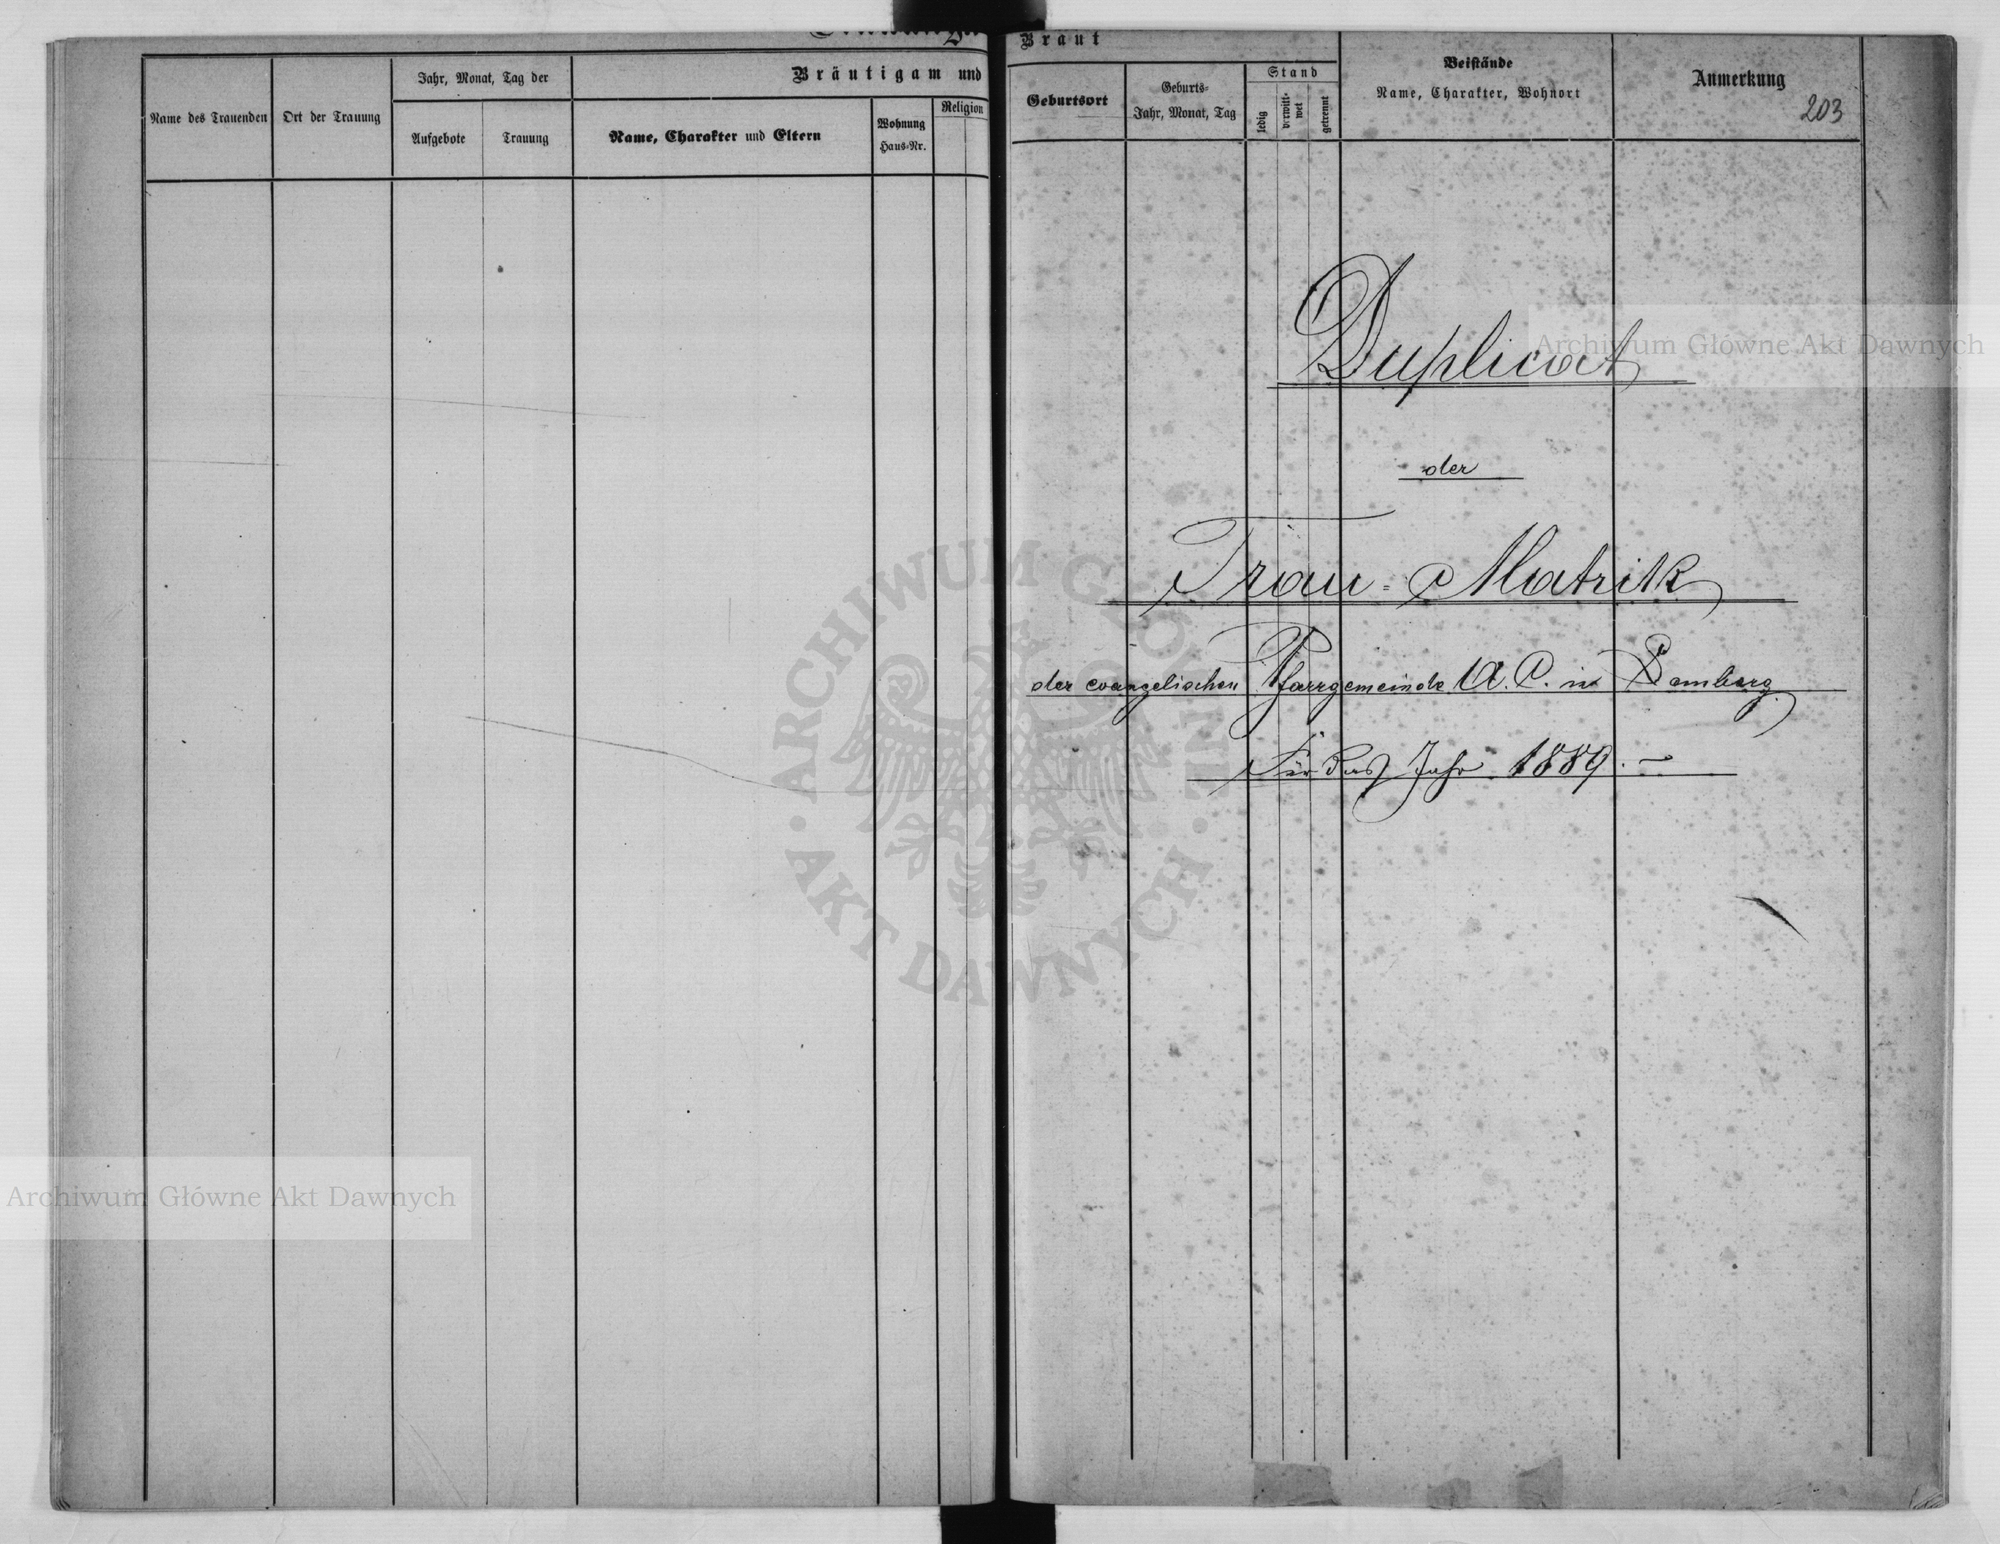 Jahr, Monat, Tag der
Bräutigam und
Name des Trauenden
Ort der Trauung
Aufgebote
Trauung
Name, Charakter und Eltern
Wohnung
Haus-Nr.
Religion
Braut
Geburtsort
Geburts-
Jahr, Monat, Tag
Stand
ledig
verwitt-
wet
getrennt
Beistände
Name, Charakter, Wohnort
Anmerkung
203
Duplicat
der
Trau-Matrik
der evangelischen Pfarrgemeinde A. C. in Lemberg
Für das Jahr 1889.-
Archiwum Główne Akt Dawnych
ARCHIWUM GŁÓWNE
AKT DAWNYCH
Archiwum Główne Akt Dawnych